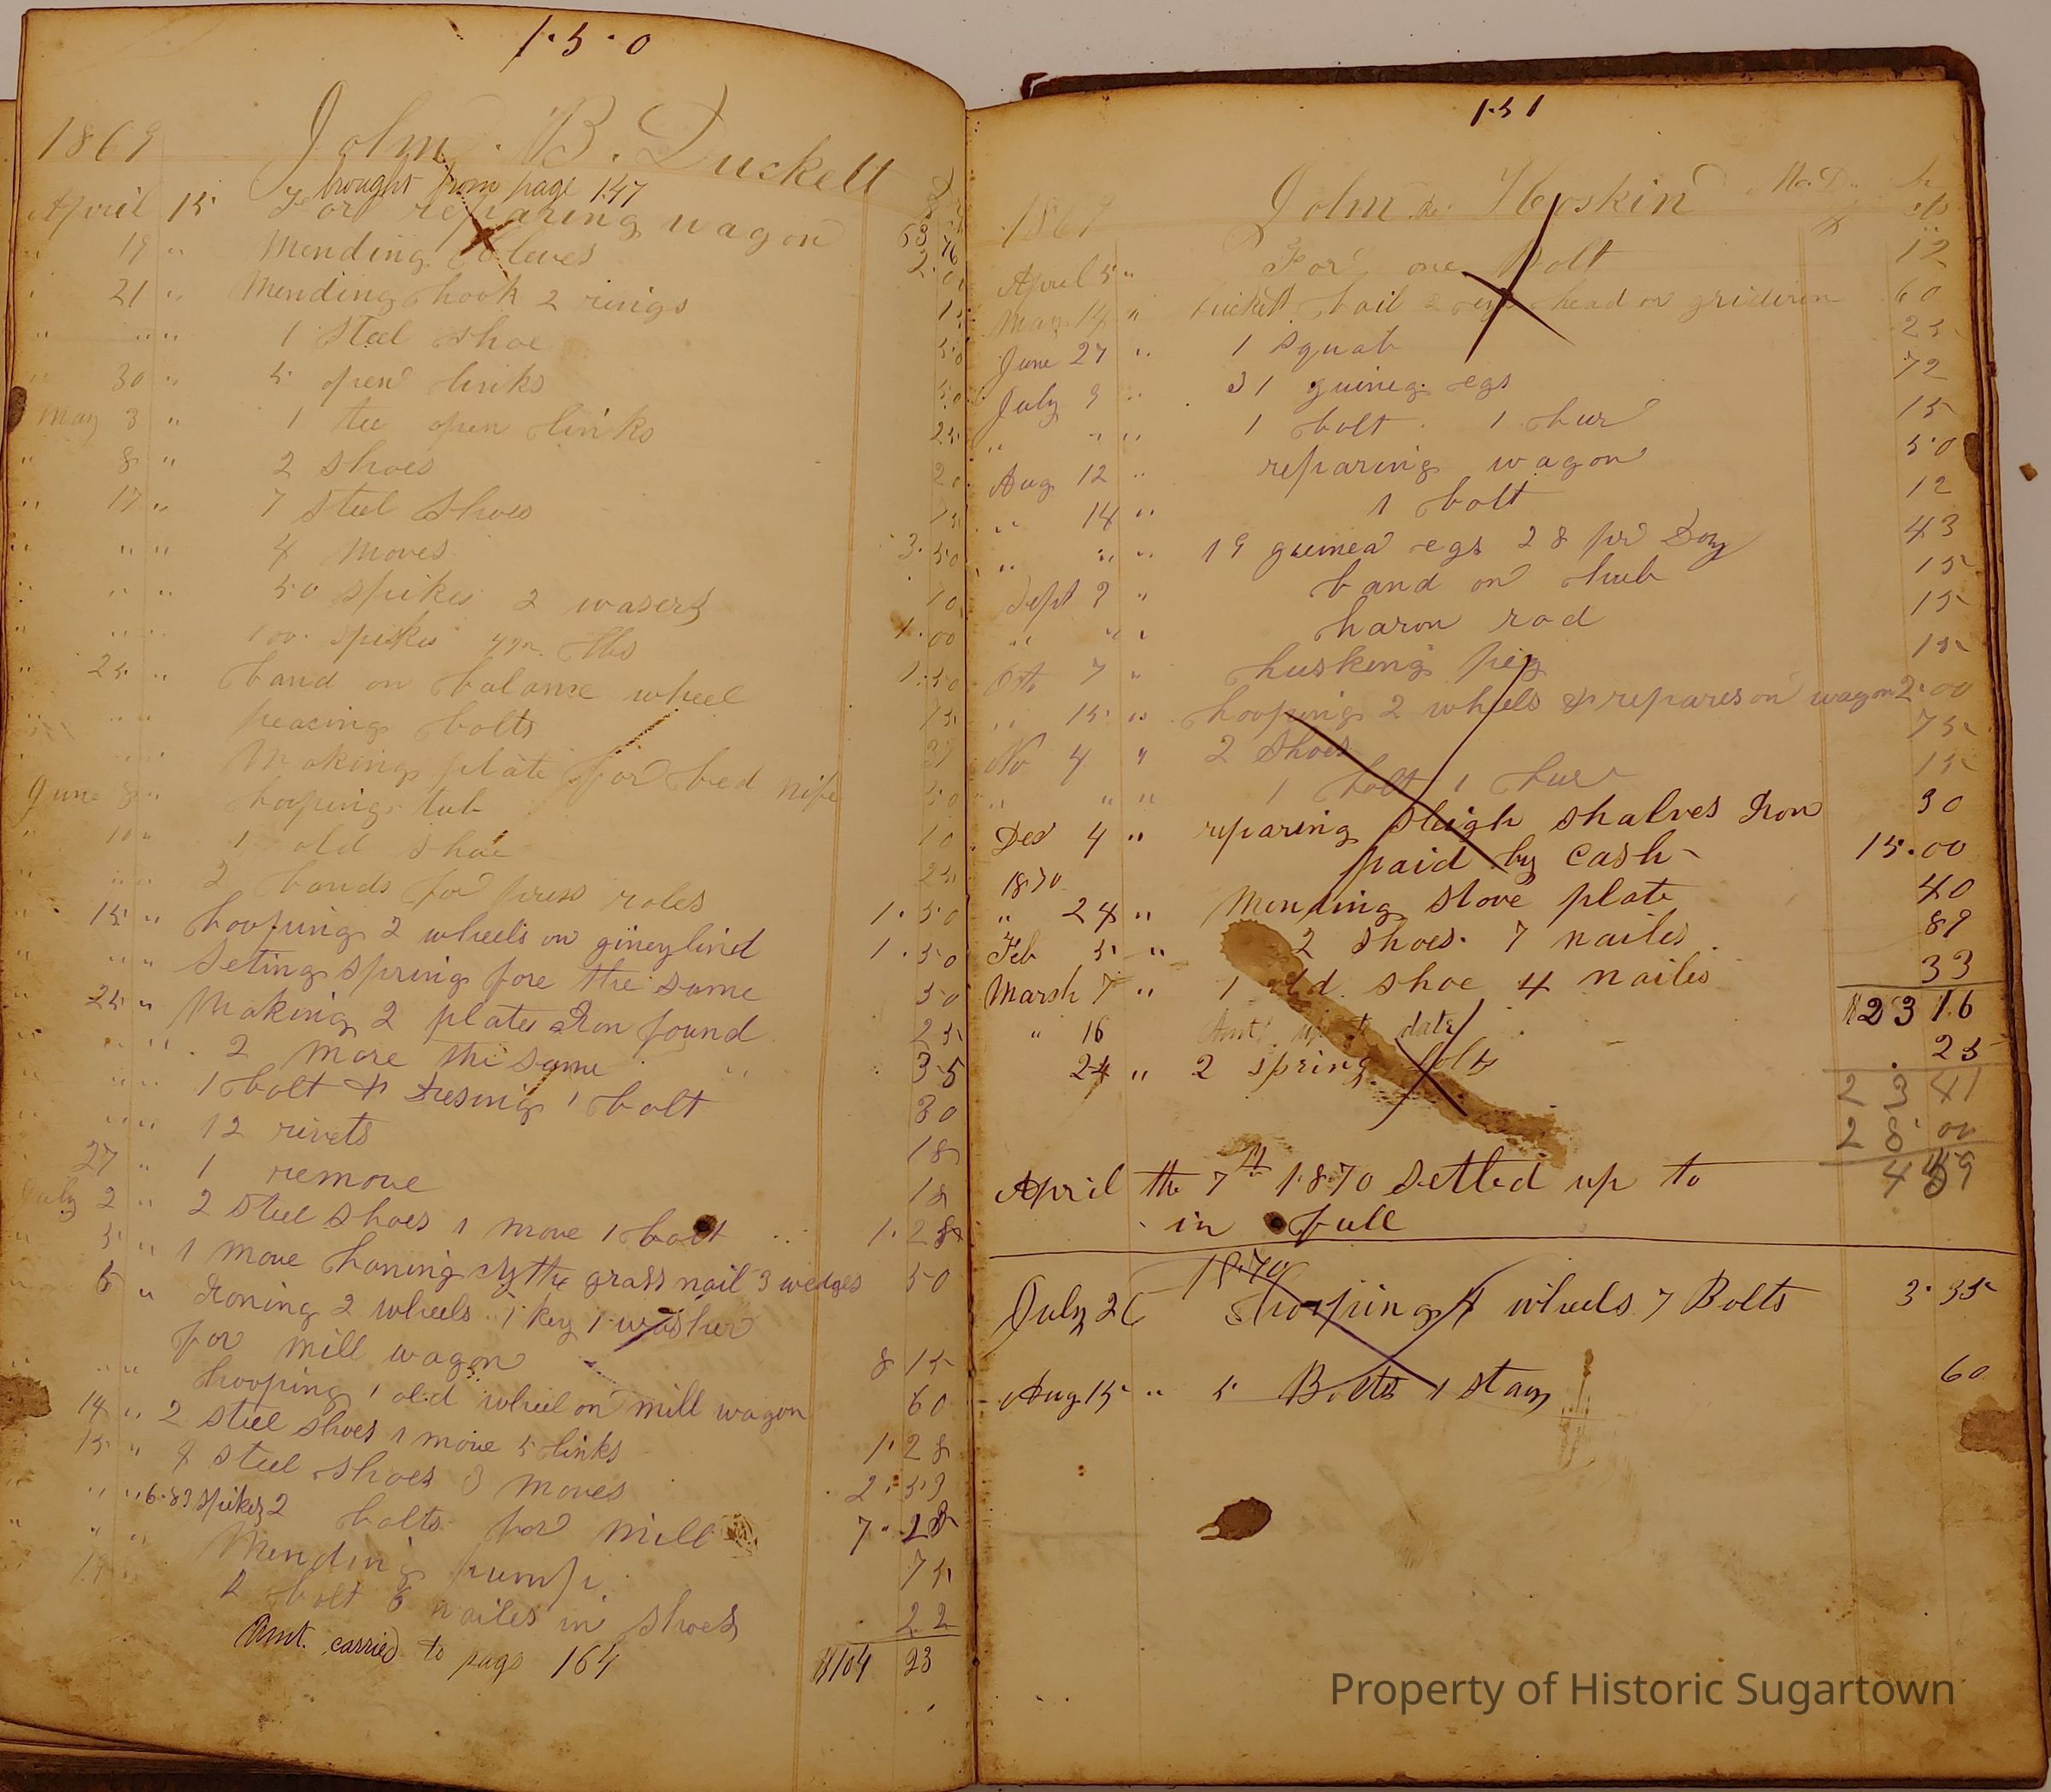 1.5.0
1869 John B. Duckett
brought from page 147
April 15 For reparing wagon 63 76
" 19 " Mending 2.0
" 21 " Mending hook 2 rings
" " " 1 Steel shoe 50
" 30 " 5 open links 50
May 3 " 1 open links 25
" 8 " 2 shoes
" 17 " 7 steel shoes
" " " 4 moves 3.50
" " " 50 spikes 2 wasers 10
" " " 100 spikes lbs 1.00
" 25 " band on balance wheel 1.50
" " " peacing bolts 15
" " " Making plate for bed nife
June 8 " hooping tub 50
" 10 " 1 old shoe 10
" " " 2 bands for press roles 25
" 15 " hooping 2 wheels on gineylind 1.50
" " " Seting spring fore the same 1.50
" 25 " Making 2 plates Iron found 50
" " " 2 more the same 25
" " " 1 bolt & 1 bolt 35
" " " 12 rivets 30
27 " 1 remove 18
July 2 " 2 steel shoes 1 move 1 bolt 1.28
" 5 " 1 move honing sythe grass nail 3 wedges 50
" 6 " Ironing 2 wheels 1 key 1 washer
for mill wagon 8 15
" " " hooping 1 old wheel on mill wagon 60
14 " 2 steel shoes 1 move 5 links 1.28
15 " 4 steel shoes 3 moves 2.53
" " 6.83 spikes 2 bolts for mill 7.
" " " Mending pump 75
bolt 6 nailes in shoes 22
Amt. carried to page 164 $104 23
1.51
1869 John Hoskin
April 5 " For one Bolt 12
May 14 " buckett bail 2 head on gridiron 60
June 27 " 1 squab 25
July 9 " 31 guineg egs 72
" " " 1 bolt 1 bur 15
Aug 12 " reparing wagon 50
" 14 " 1 bolt 12
" " " 19 guinea egs 28 pr Doz 43
Sept 9 " band on hub 15
" " " harow rod 15
Oct 7 " husking peg 15
" 15 " hooping 2 wheels & repares on wagon 2.00
No 4 " 2 shoes 75
" " " 1 bolt 1 bur 15
Des 4 " reparing sleigh shalves Iron 30
1870 paid by cash 15.00
" 24 " Mending stove plate 40
Feb 5 " 2 shoes 7 nailes 89
Marsh 7 " 1 old shoe 4 nailes 33
" 16 Amt up to date $23 16
24 " 2 spring bolts 25
23 41
April the 7th 1870 Setled up to
in full
1870
July 26 hooping 4 wheels 7 Bolts 3.35
Aug 15 " 5 Bolts 1 stay 60
Property of Historic Sugartown